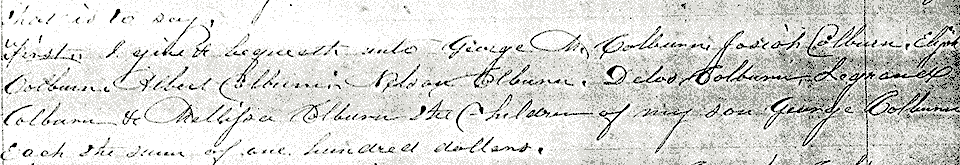 that is to say,
First, I give & bequeath unto George M. Colburn, Josiah Colburn, Elijah
Colburn, Albert Colburn, Nelson Colburn, Delos Colburn, Legrand
Colburn & Mellissa Colburn the Children of my son George Colburn
Each the sum of one hundred dollars.